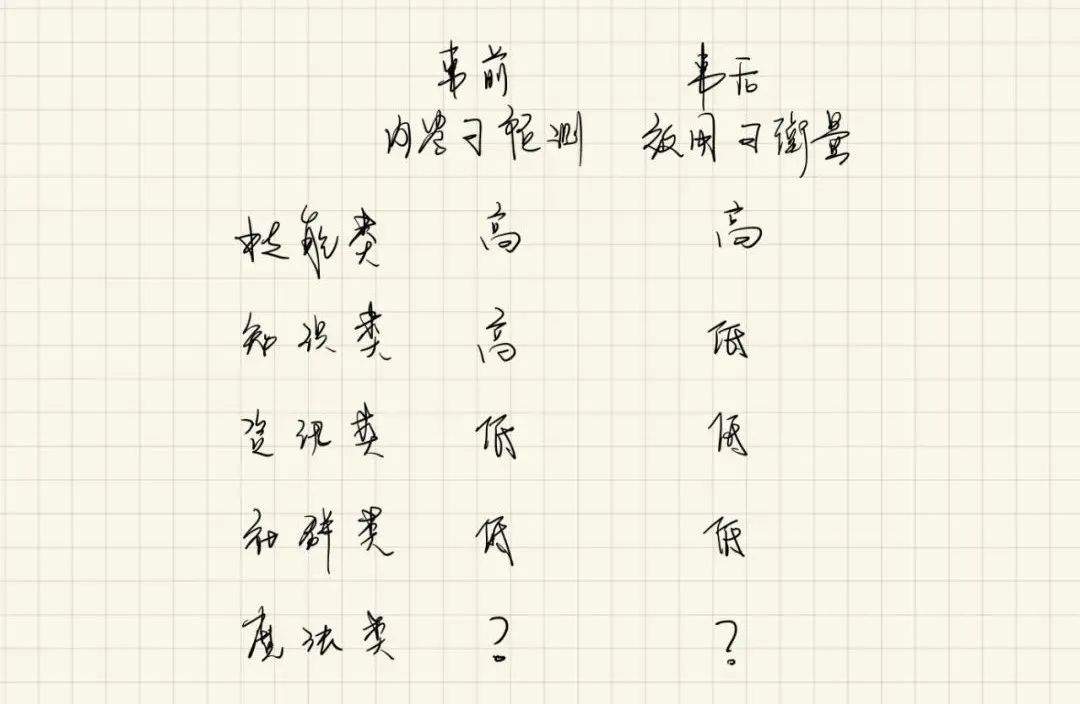 事前 事后
内容可预测 效用可衡量
技能类 高 高
知识类 高 低
资讯类 低 低
社群类 低 低
魔法类 ? ?